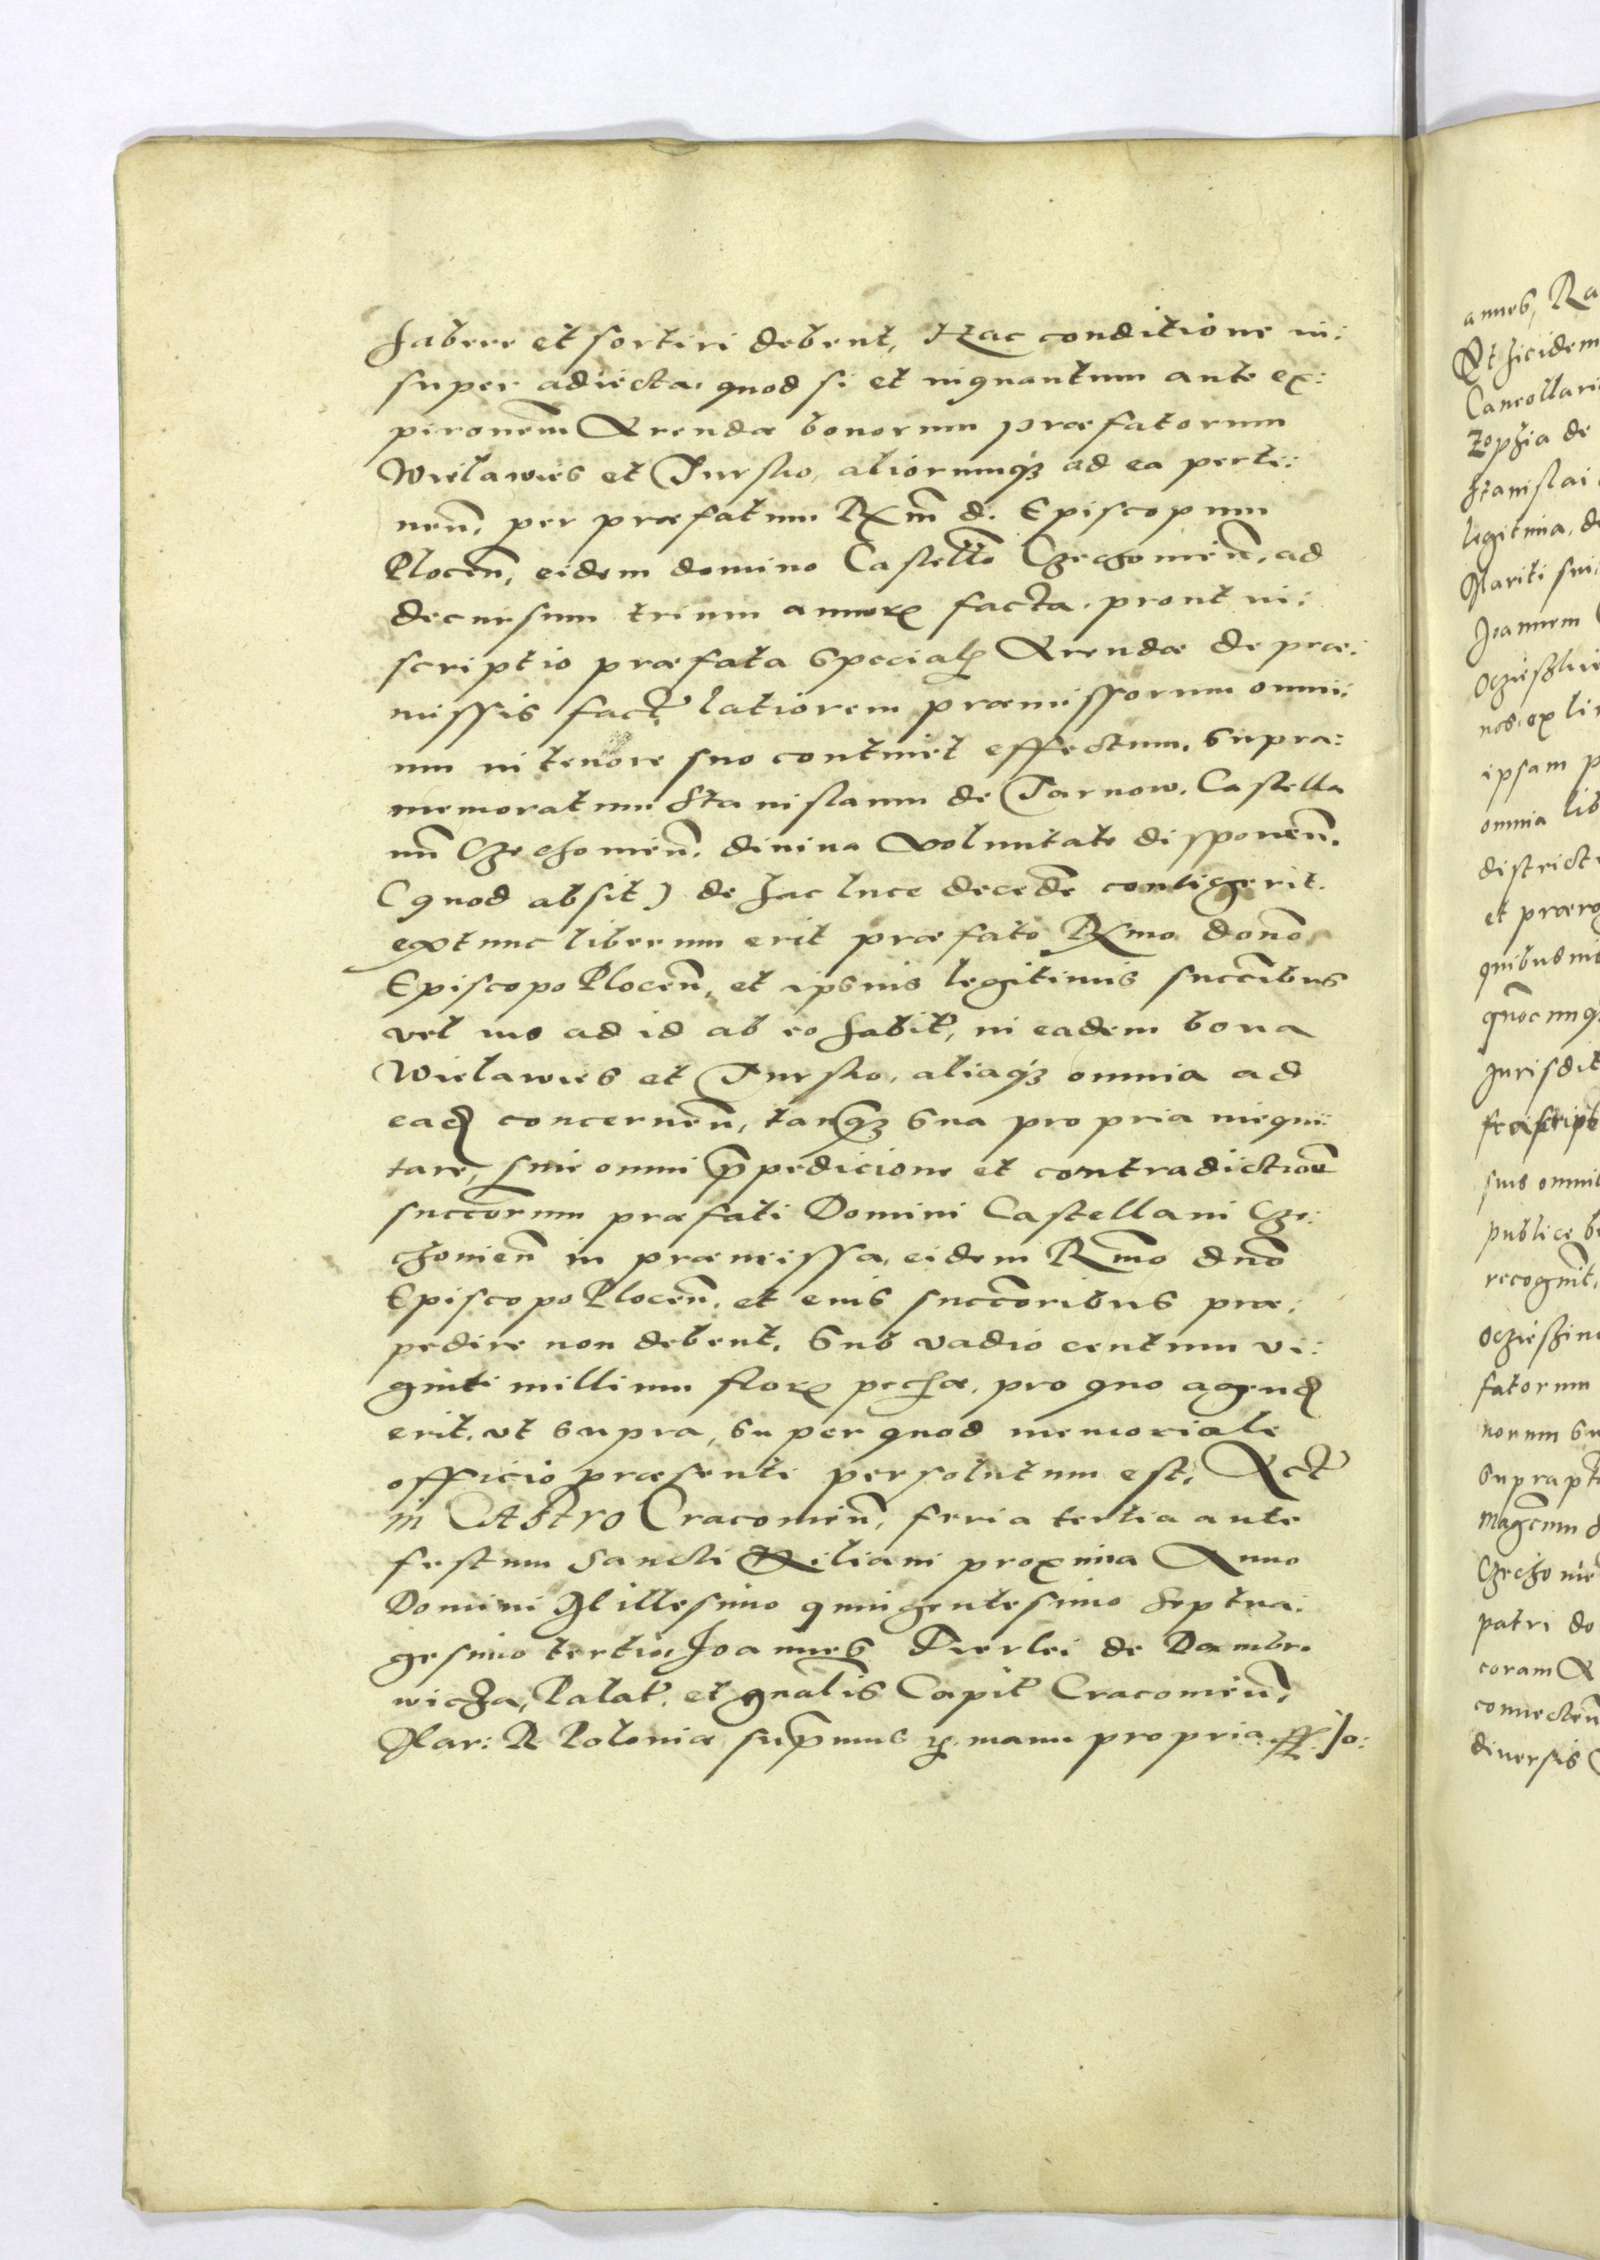 habere et sortiri debent, Hac conditione in:
super adiecta, quod si et inquantum ante ex:
pironem Arendæ bonorum præfatorum
Wielawies et Tursko, aliorumq3 ad ea perti:
nen̄, per præfatum Rx̄m d. Episcopum
Plocen̄, eidem domino Castelło Czechowien̄, ad
decursum trium annorꝝ facta, prout in:
scriptio præfata specialꝭ Arendæ de præ:
missis fact̃ latiorem præmissorum omni:
um in tenore suo continet effectum, supra:
memoratum Stanislaum de Tarnow, Castella
nū Czechowien̄, divina voluntate disponen̄,
(quod absit) de hac luce decedē contigerit.
extunc liberum erit præfato Rx̄mo dono
Episcopo Plocen̄, et ipsius legitimis succībus
vel ius ad id ab eo habit̃, in eadem bona
Wielawies et Tursko, aliaq3 omnia ad
eadꝫ concernen̄, tanq̄3 sua propria inequi:
tare, sine omni p̄pedicione et contradictioē
succorum præfati Domini Castellani Cze:
chowien̄ in præmissa, eidem Rm̄o dnō
Episcopo Plocen̄, et eius succoribus præ:
pedire non debent, sub vadio centum vi:
ginti millium florꝝ pechæ, pro quo agendꝫ
erit, ut supra, super quod memoriale
officio præsenti persolutum est, Act̃
in CAstro Cracovien̄, feria tertia ante
festum Sancti Kiliani proxima Anno
Domini Millesimo quingentesimo Septua:
gesimo tertio, Joannes Fierlei de Dambro
wicza, Palat̃, et gnālis Capit̃ Cracovien̄,
Mar: R Poloniæ sup̄mus ꝫ manu propria sst Jo:
annes, Ra
Et ibidem
Cancellari
Zophia de
Stanislai
legitima, de
Mariti sui,
Joannem
ipsam p
omnia lib
districte
et prærog
quibusvis
Jurisdit
suis omnib
publice
recognit,
fatorum
patri do
coram A
diversis